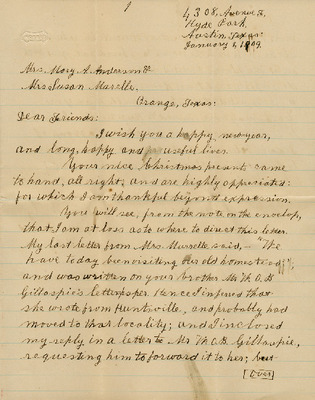 1
4308, Avenue F,
Hyde Park,
Austin, Texas:
January 1, 1909.
Mrs. Mary A. Anderson &
Mrs Susan Murelle.
Orange, Texas:
Dear Friends:
I wish you a happy new year,
and long, happy and useful lives.
Your nice Christmas presents came
to hand, all right, and are highly appreciated:
for which I am thankful beyond expression.
You will see, from the note on the envelop,
that I am at loss as to where to direct this letter.
My last letter from Mrs. Murrelle said, - "We
have today been visiting the old homestead";
and was written on your brother Mr. W. A. B
Gillaspie's letter paper. Hence I infered that
she wrote from Huntsville, and probably had
moved to that locality; and I inclosed
my reply in a letter to Mr W. A. B. Gillaspie,
requesting him to forward it to her; but
[Over]